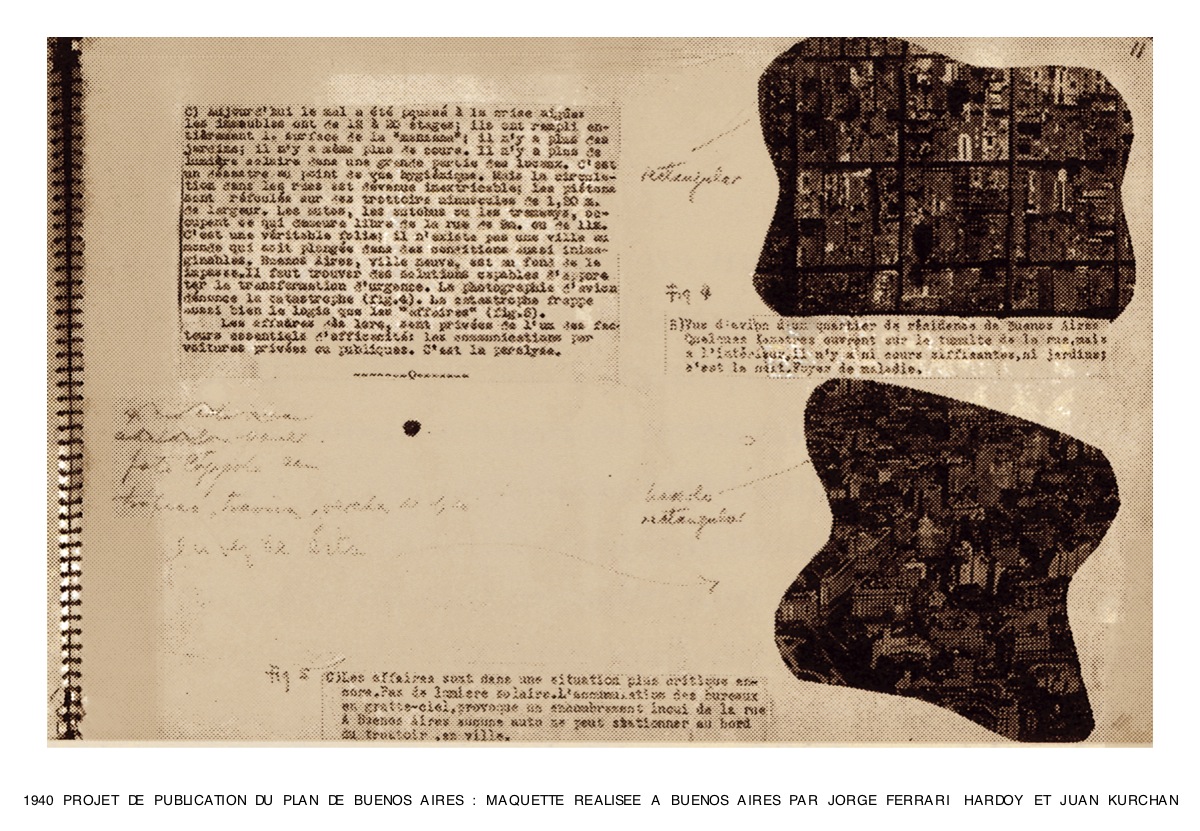 11
C) Aujourd'hui le mal a été poussé à la crise aigüe:
les immeubles ont de 12 à 20 étages; ils ont rempli en-
tièrement la surface de la "manzana"; il n'y a plus des
jardins; il n'y a même plus de cours. Il n'y a plus de
lumière solaire dans une grande partie des locaux. C'est
un désastre au point de vue hygiénique. Mais la circula-
tion dans les rues est devenue inextricable; les piétons
sont refoulés sur des trottoirs minuscules de 1,20 m.
de largeur. Les autos, les autobus ou les tramways, oc-
cupent ce qui demeure libre de la rue de 9m. ou de 11m.
C'est une véritable folie; il n'existe pas une ville au
monde qui soit plongée dans des conditions aussi inima-
ginables. Buenos Aires, ville neuve, est au fond de la
impasse.Il faut trouver des solutions capables d'appor-
ter la transformation d'urgence. La photographie d'avion
dénonce la catastrophe (fig.4). La catastrophe frappe
aussi bien le logis que les "affaires" (fig.5).
Les affaires dès lors, sont privées de l'un des fac-
teurs essentiels d'efficacité: les communications par
voitures privées ou publiques. C'est la paralyse.
rectangular
fig 4
B)Vue d'avion d'un quartier de résidence de Buenos Aires
Quelques fenêtres ouvrent sur le tumulte de la rue,mais
a l'intérieur,il n'y a ni cours suffisantes,ni jardins;
c'est la nuit.Foyer de maladie.
foto Coppola
rectangular
fig 5
C)Les affaires sont dans une situation plus critique en-
core.Pas de lumiere solaire.l'accumulation des bureaux
en gratte-ciel,provoque un encombrement inoui de la rue
A Buenos Aires aucune auto ne peut stationner au bord
du trottoir ,en ville.
1940 PROJET DE PUBLICATION DU PLAN DE BUENOS AIRES : MAQUETTE REALISEE A BUENOS AIRES PAR JORGE FERRARI HARDOY ET JUAN KURCHAN